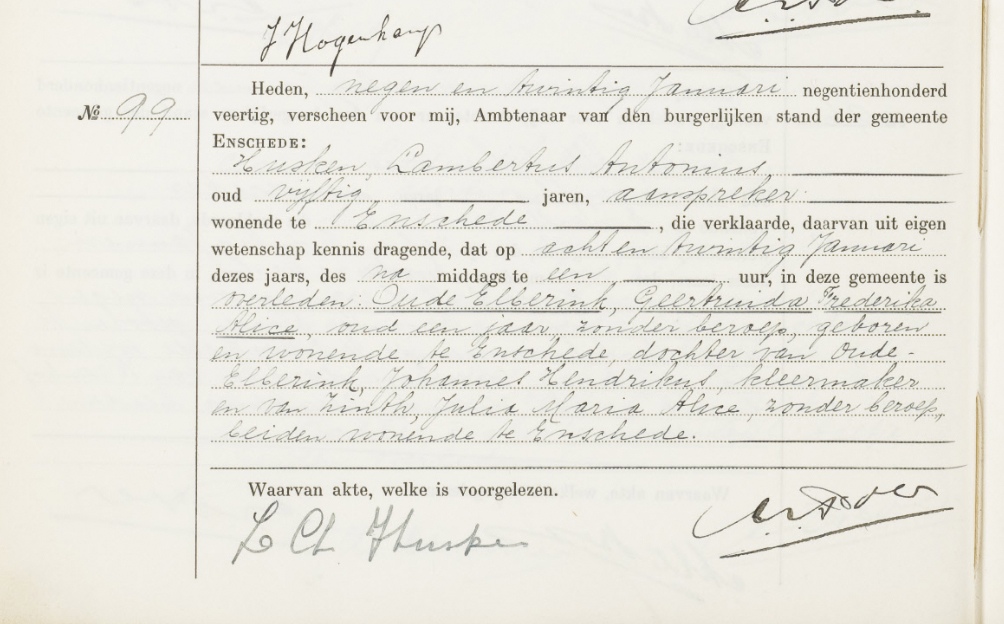 J Hogenkamp
Heden, negen en twintig Januari negentienhonderd
№ 99
veertig, verscheen voor mij, Ambtenaar van den burgerlijken stand der gemeente
ENSCHEDE:
Husken, Lambertus Antonius,
oud vijftig jaren, aanspreker
wonende te Enschede, die verklaarde, daarvan uit eigen
wetenschap kennis dragende, dat op acht en twintig Januari
dezes jaars, des na middags te een uur, in deze gemeente is
overleden: Oude Elberink, Geertruida Frederika
Alice, oud een jaar, zonder beroep, geboren
en wonende te Enschede, dochter van Oude-
Elberink, Johannes Hendrikus, kleermaker
en van Zinth, Julia Maria Alice, zonder beroep,
beiden wonende te Enschede.
Waarvan akte, welke is voorgelezen.
L Ch Husken